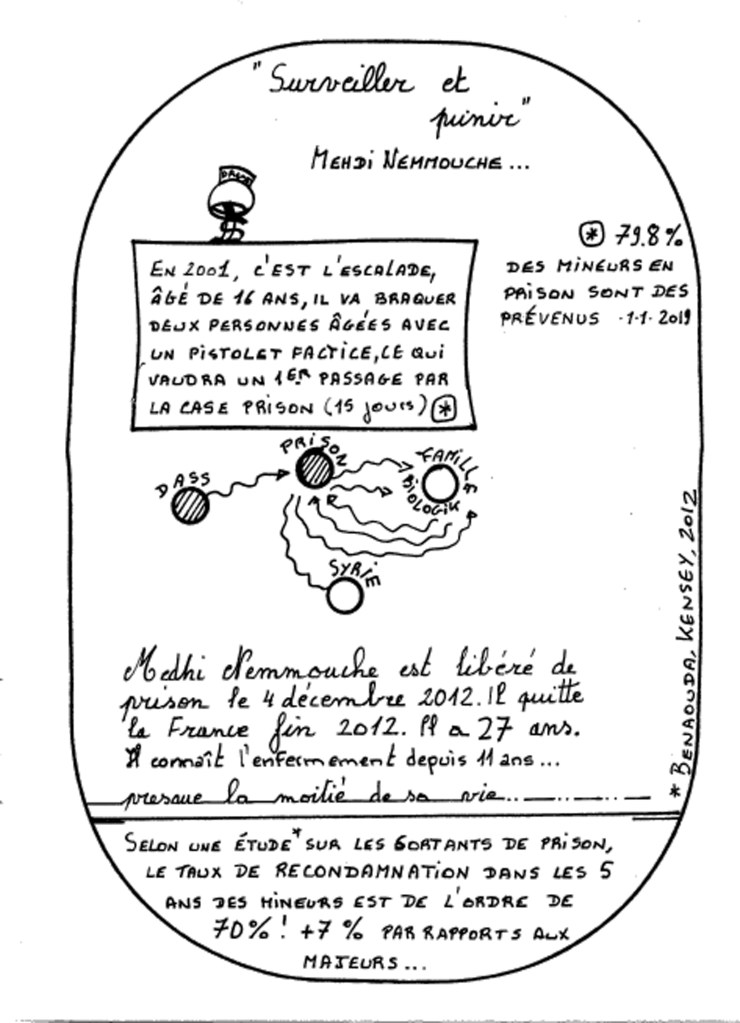 "Surveiller et
punir"
MEHDI NEMMOUCHE...
EN 2001, C'EST L'ESCALADE,
ÂGÉ DE 16 ANS, IL VA BRAQUER
DEUX PERSONNES ÂGÉES AVEC
UN PISTOLET FACTICE, CE QUI
VAUDRA UN 1ER PASSAGE PAR
LA CASE PRISON (15 jours) *
* 79.8%
DES MINEURS EN
PRISON SONT DES
PRÉVENUS -1-1-2019
DASS
PRISON
FAMILLE
BIOLOGIK
SYRIE
Medhi Nemmouche est libéré de
prison le 4 décembre 2012. Il quitte
la France fin 2012. Il a 27 ans.
Il connaît l'enfermement depuis 11 ans...
presque la moitié de sa vie...
* BENAOUDA, KENSEY, 2012
SELON UNE ÉTUDE* SUR LES SORTANTS DE PRISON,
LE TAUX DE RECONDAMNATION DANS LES 5
ANS DES MINEURS EST DE L'ORDRE DE
70%! +7% PAR RAPPORTS AUX
MAJEURS...